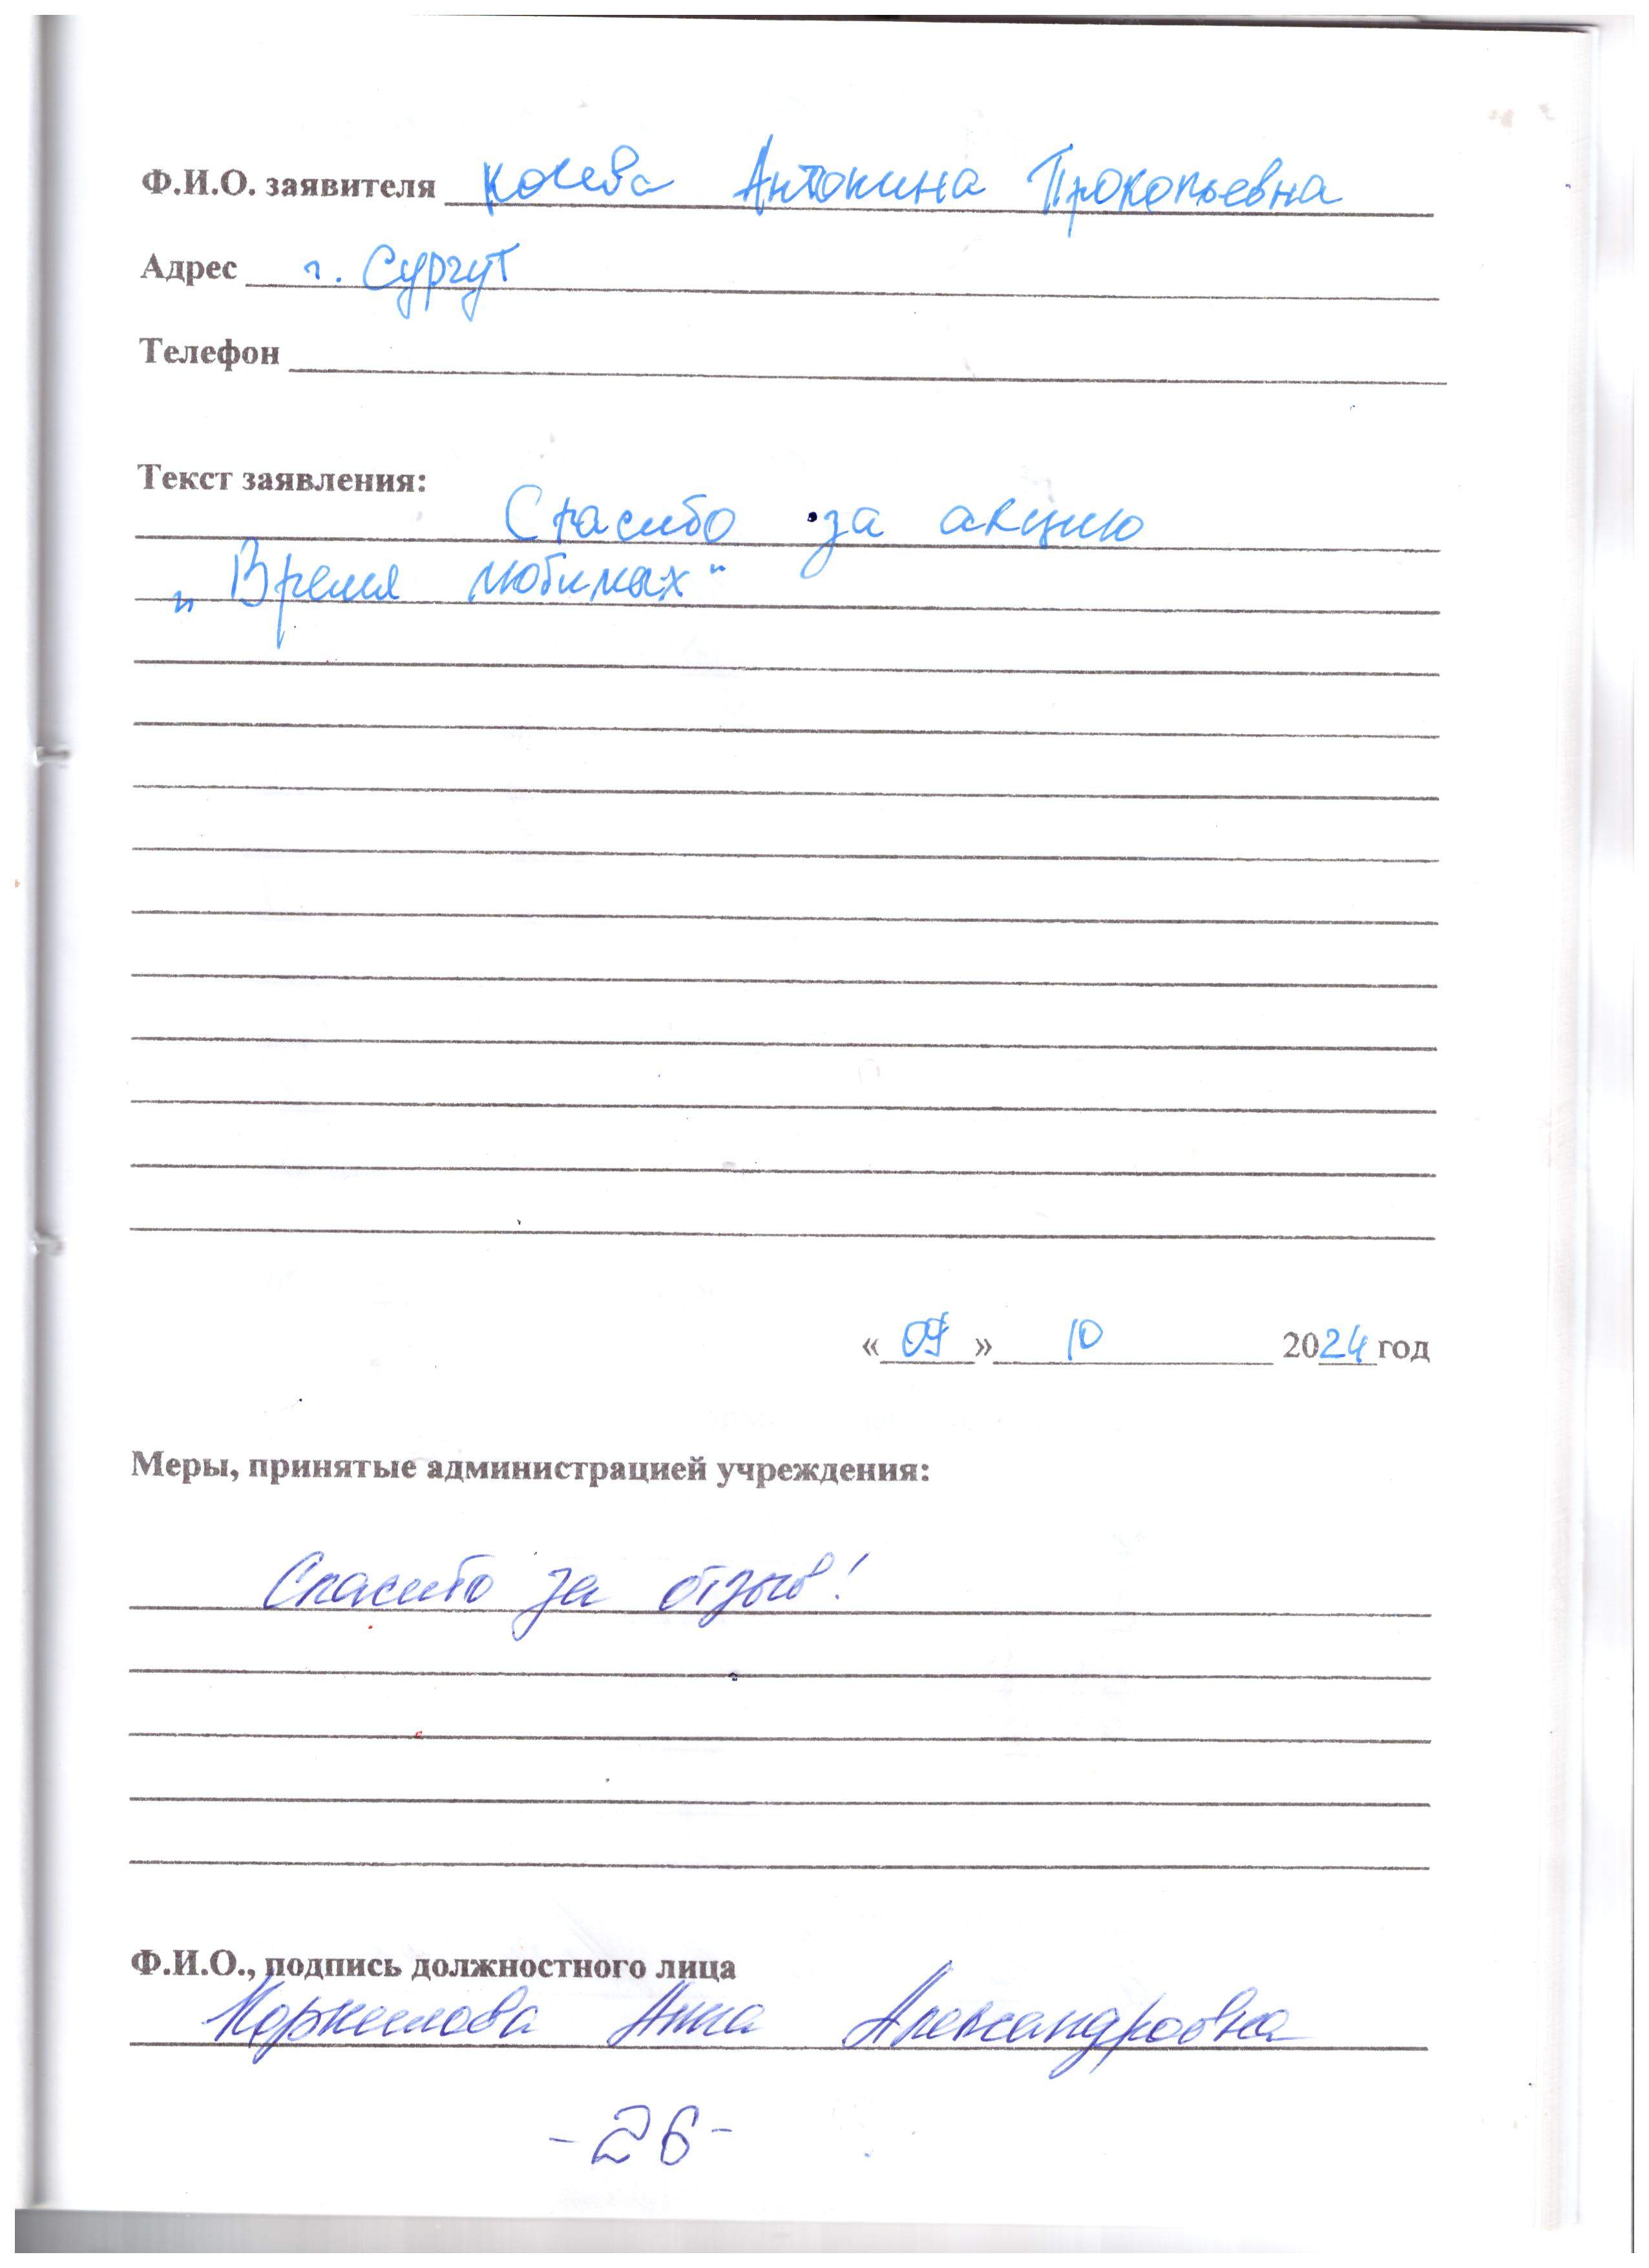 Ф.И.О. заявителя Антонина Прокопьевна
Адрес г. Сургут
Телефон
Текст заявления:
Спасибо за акцию
„Время любимых“
«09» 10 2024 год
Меры, принятые администрацией учреждения:
Спасибо за отзыв!
Ф.И.О., подпись должностного лица
Корнилова Анна Александровна
-26-